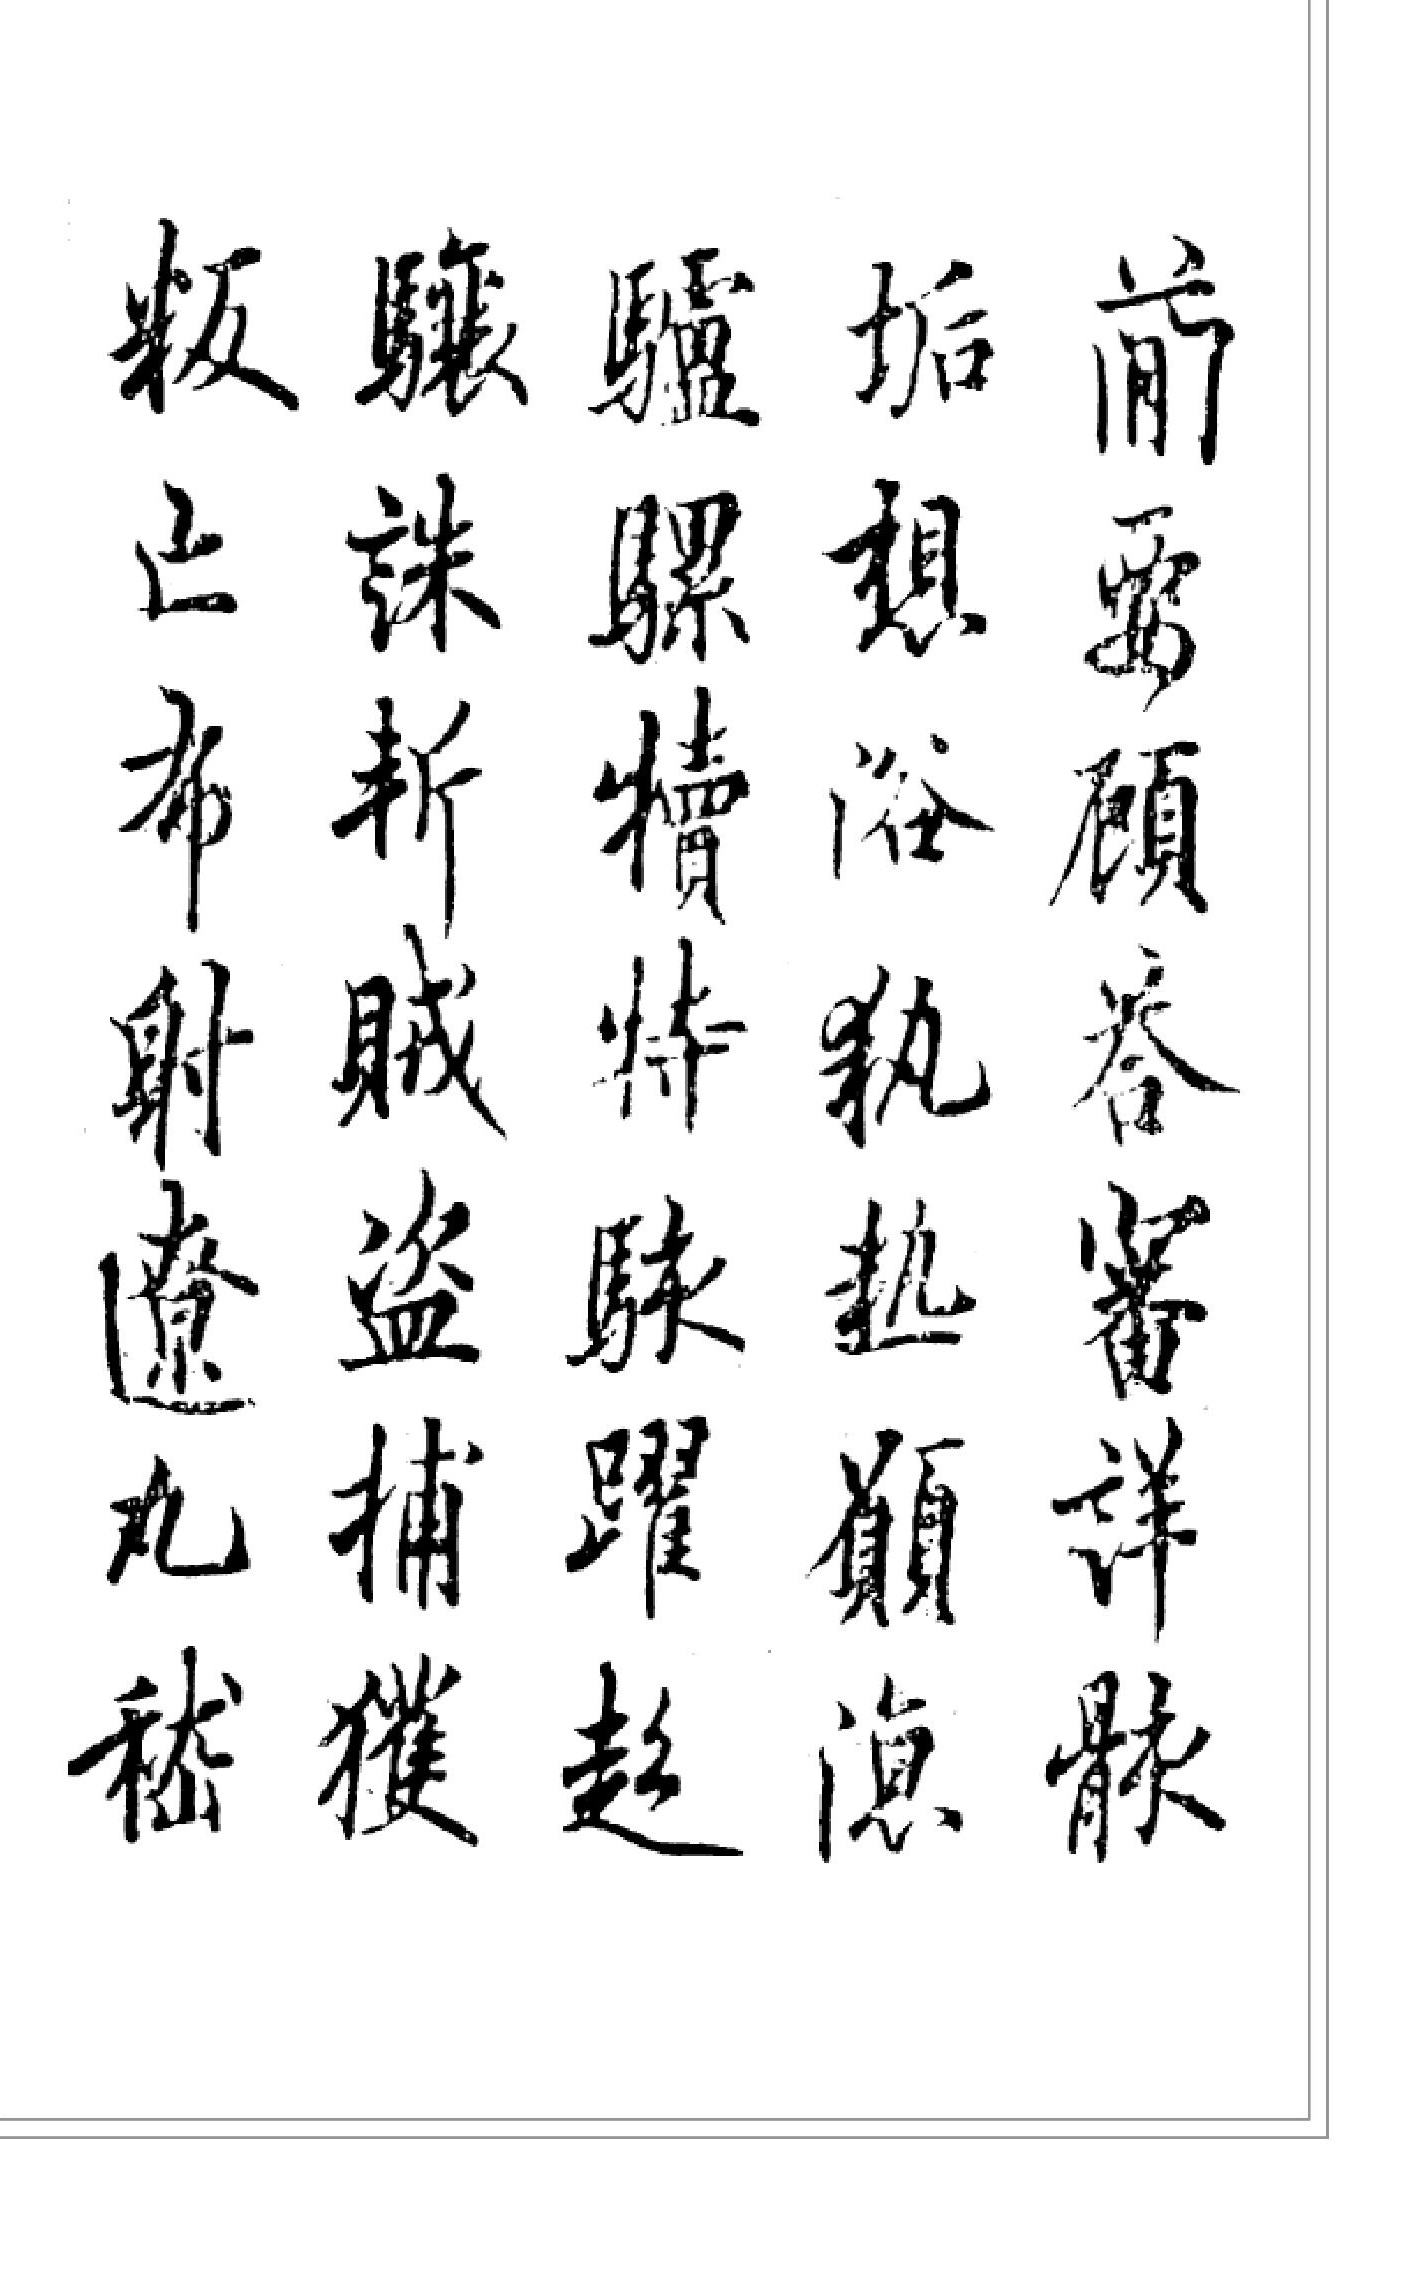 簡要顧答審詳骸
垢想浴執熱願涼
驢騾犢特駭躍超
驤誅斬賊盜捕獲
叛亡布射遼丸嵇